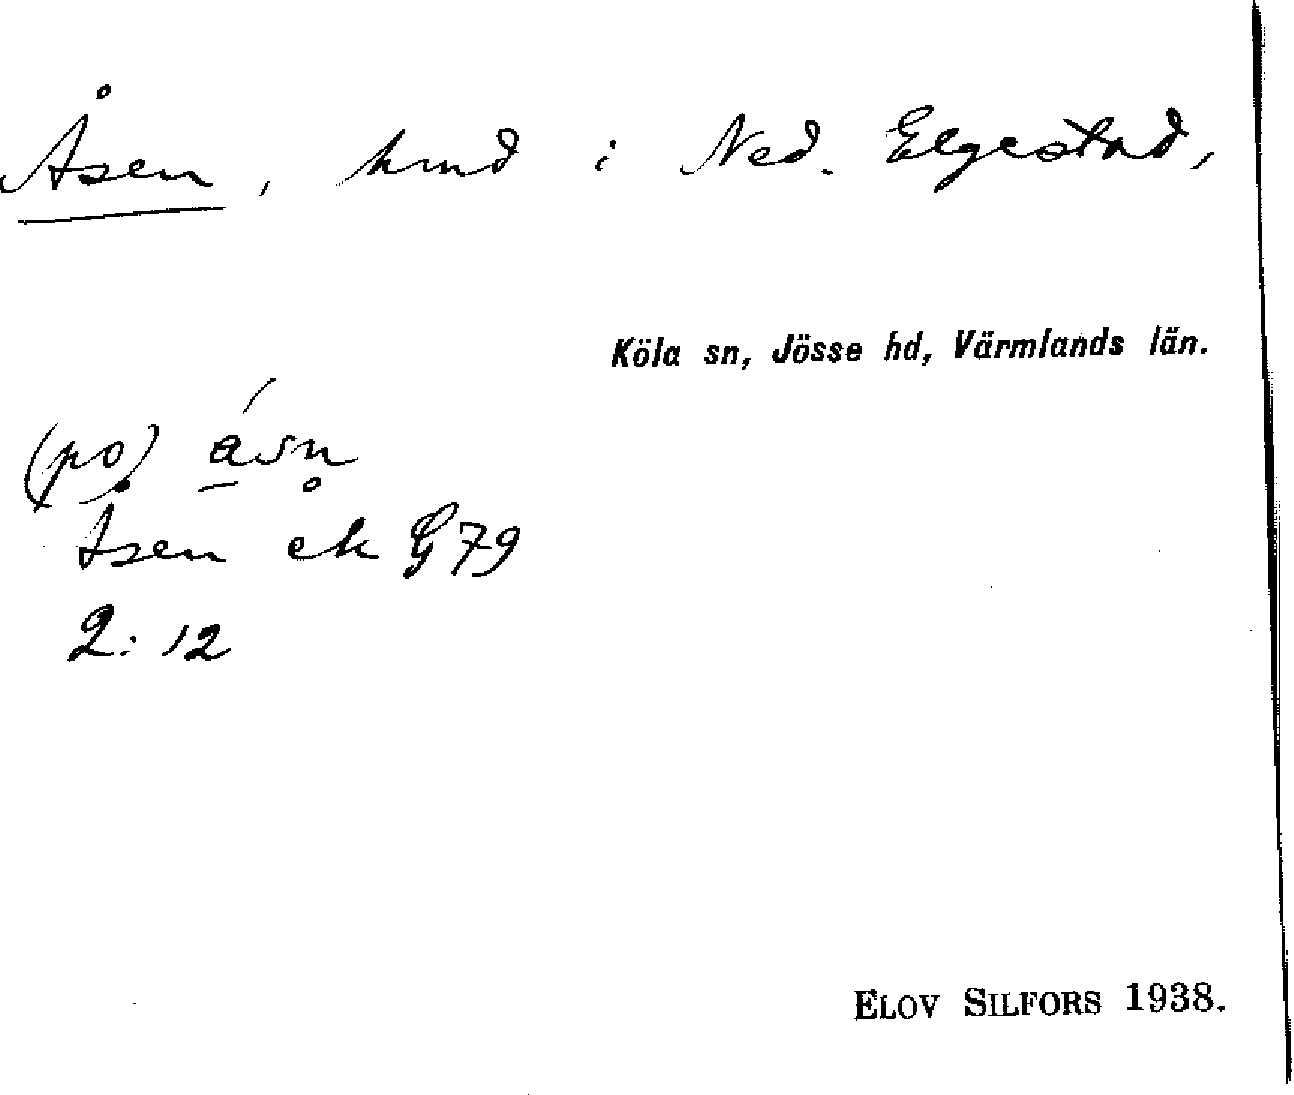 Åsen, hmd i Ned. Elgestad,
Köla sn, Jösse hd, Värmlands län.
(po) a̲´sn̥
Åsen ek G 79
2: 12
ELOV SILFORS 1938.